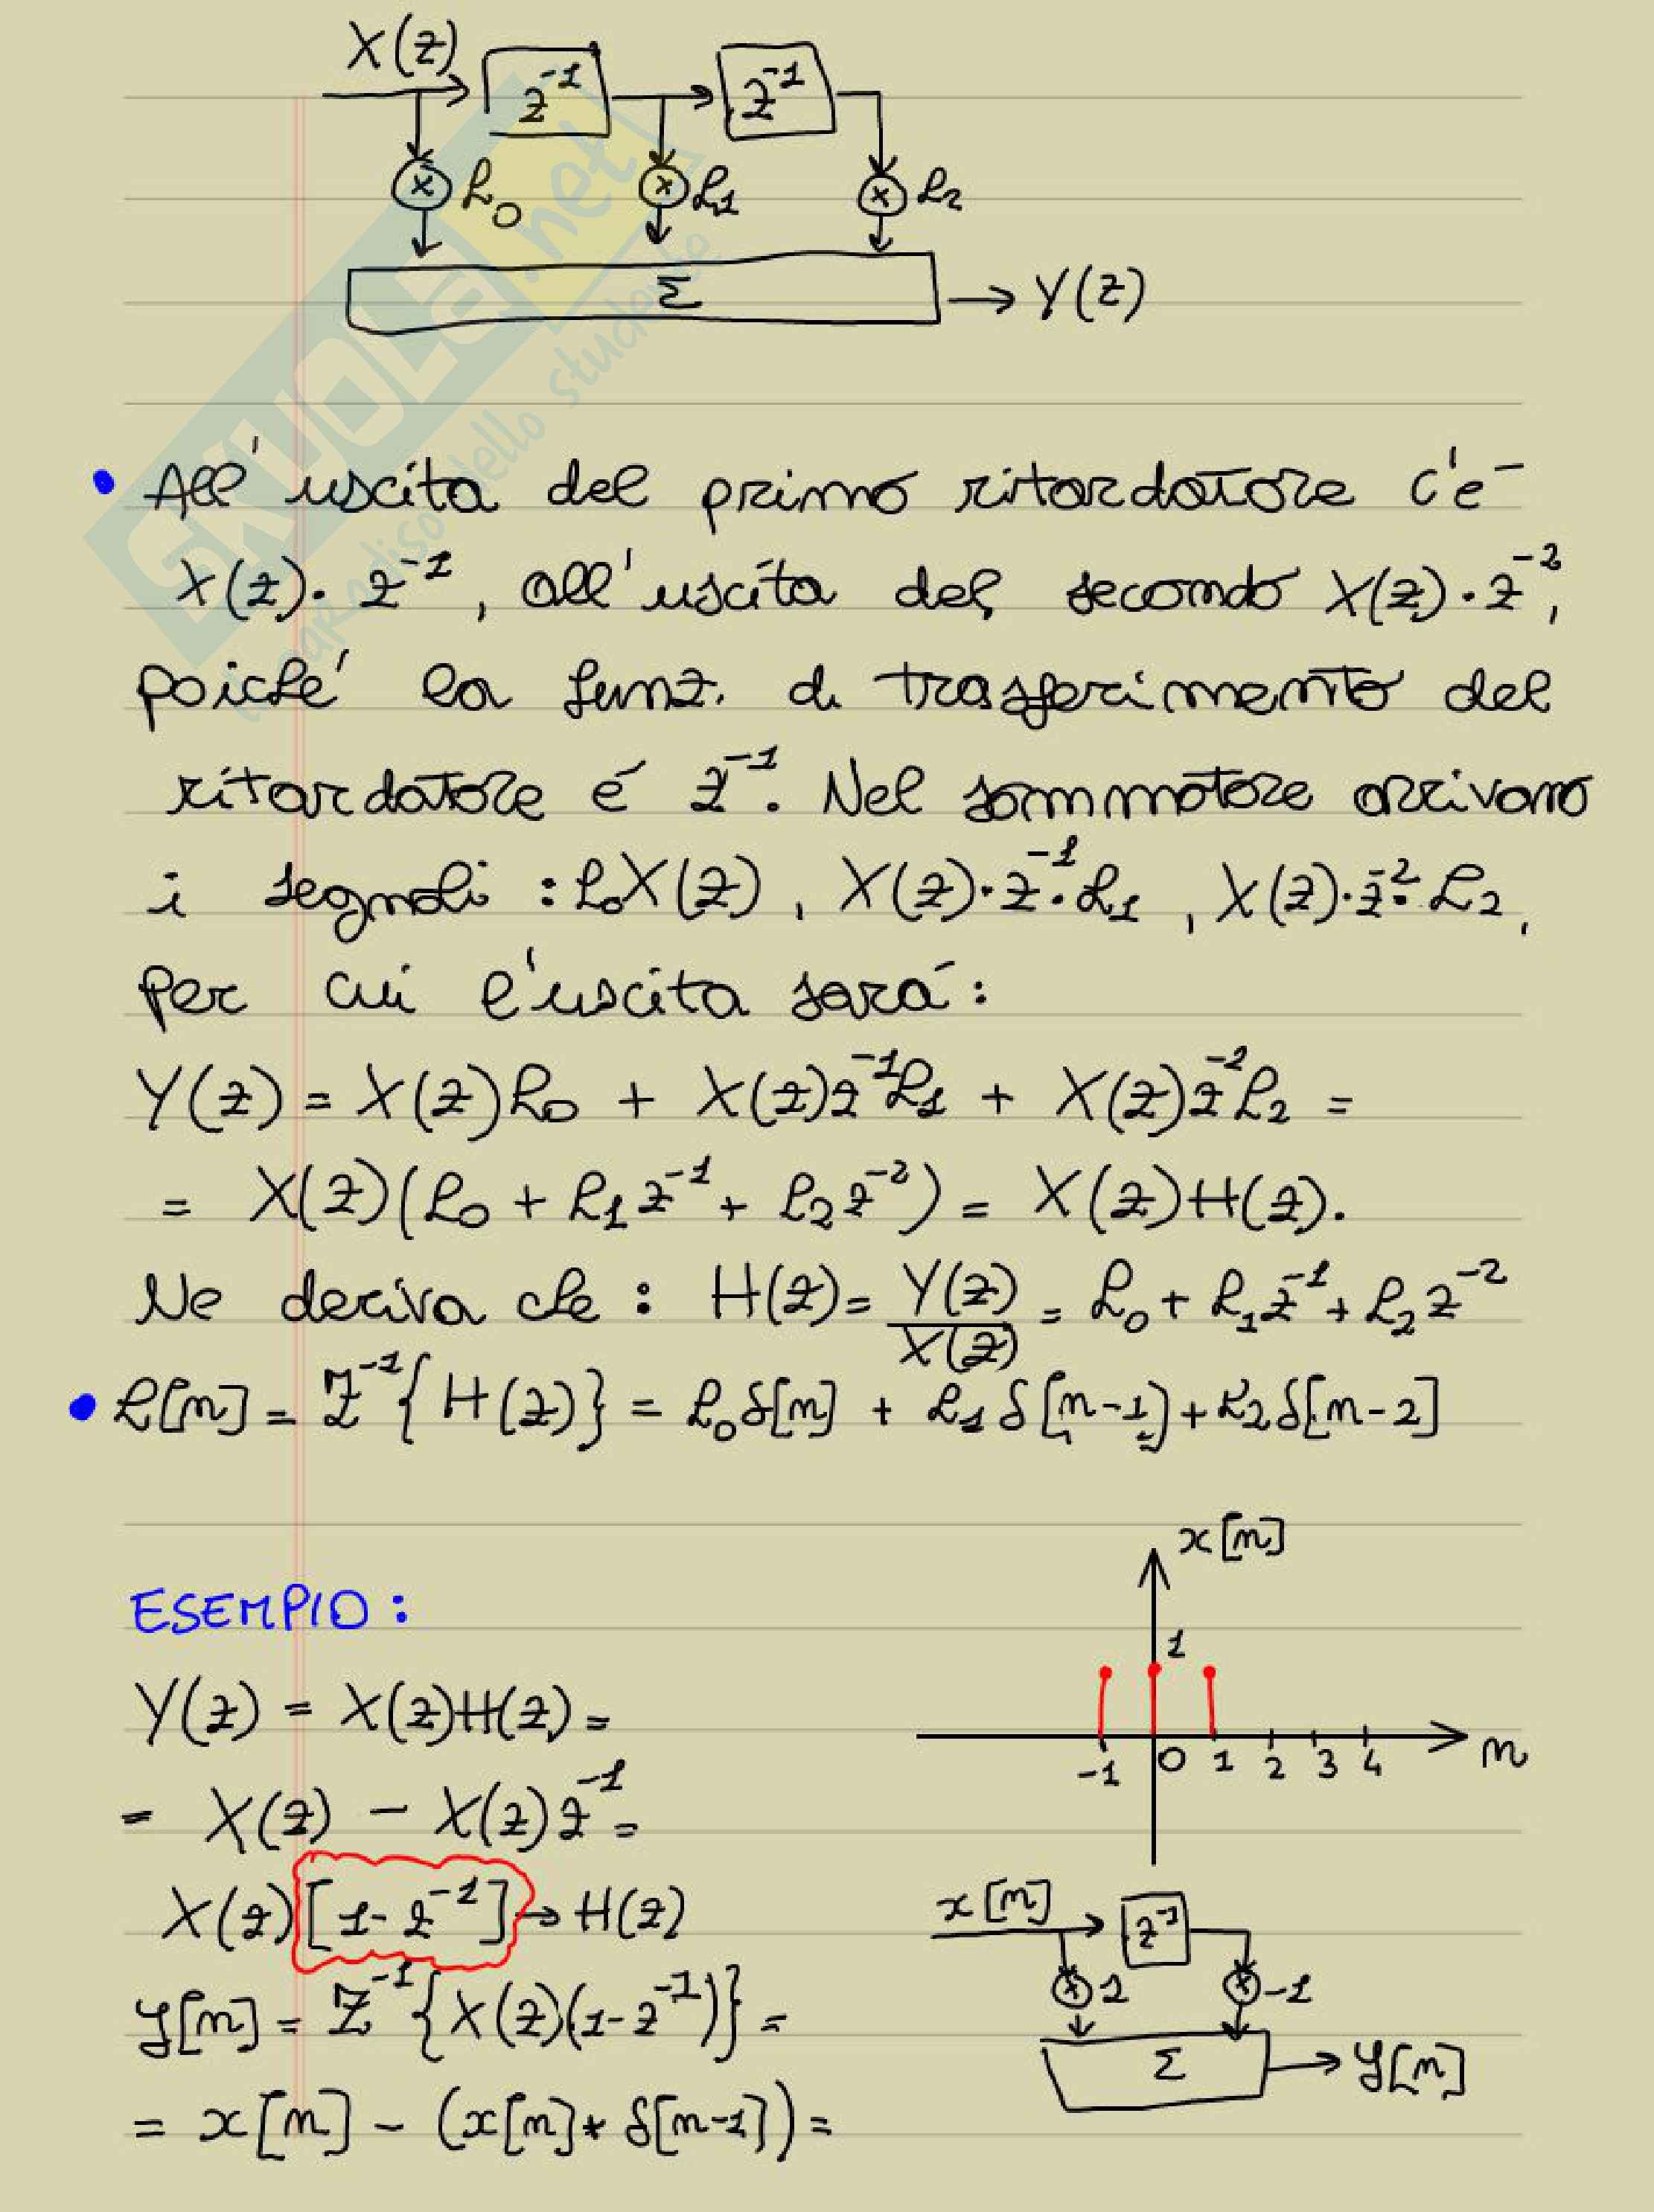 X(z)
z⁻¹
z⁻¹
x h₀
x h₁
x h₂
Σ
Y(z)
SKUOLA.net
paradiso dello studente
• All'uscita del primo ritardatore c'è
X(z)·z⁻¹, all'uscita del secondo X(z)·z⁻²,
poiché la funz. di trasferimento del
ritardatore é z⁻¹. Nel sommatore arrivano
i segnali : h₀X(z), X(z)·z⁻¹·h₁, X(z)·z⁻²·h₂,
per cui l'uscita sará:
Y(z) = X(z)h₀ + X(z)z⁻¹h₁ + X(z)z⁻²h₂ =
= X(z)(h₀ + h₁z⁻¹ + h₂z⁻²) = X(z)H(z).
Ne deriva che : H(z) = Y(z)/X(z) = h₀ + h₁z⁻¹ + h₂z⁻²
• h[n] = Z⁻¹{H(z)} = h₀δ[n] + h₁δ[n-1] + h₂δ[n-2]
x[n]
1
-1 0 1 2 3 4 n
ESEMPIO :
Y(z) = X(z)H(z) =
= X(z) - X(z)z⁻¹ =
X(z)[1-z⁻¹] → H(z)
y[n] = Z⁻¹{X(z)(1-z⁻¹)} =
= x[n] - (x[n]* δ[n-1]) =
x[n]
z⁻¹
x 1
x -1
Σ
y[n]